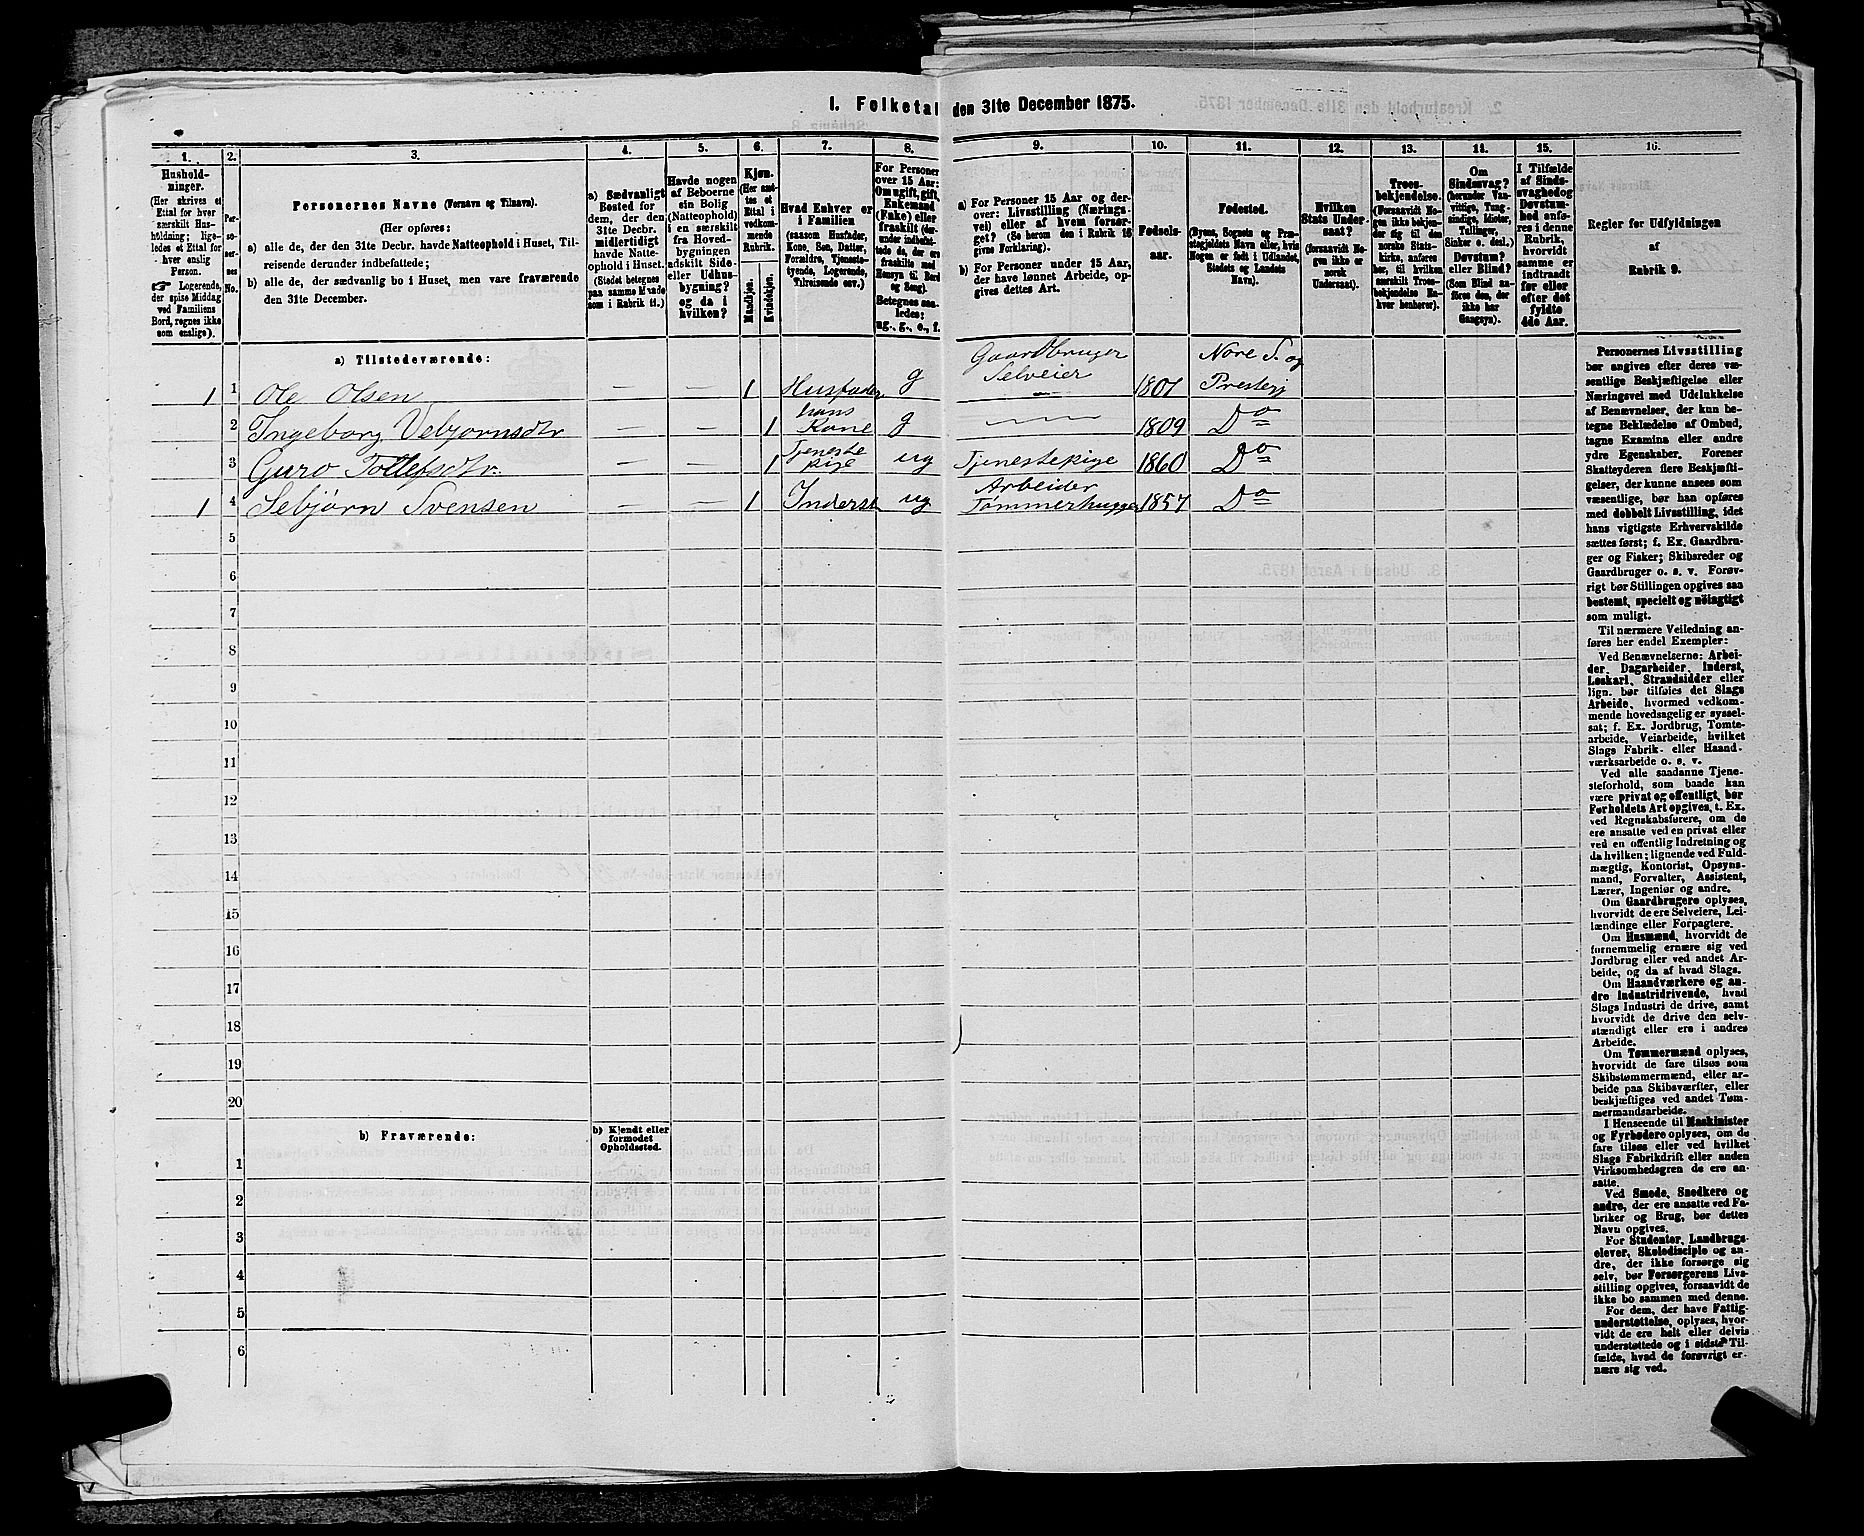 I. Folketal den 31te December 1875.
1.
Hushold-
ninger.
(Her skrives et
Ettal for hver
særskilt Hus-
holdning; lige-
ledes et Ettal for
hver enslig
Person.
☞ Logerende,
der spise Middag
ved Familiens
Bord, regnes ikke
som enslige).
2.
Per-
so-
ner-
nes
No.
3.
Personernes Navne (Fornavn og Tilnavn).
(Her opføres:
a) alle de, der den 31te Decbr. havde Natteophold i Huset, Til-
reisende derunder indbefattede;
b) alle de, der sædvanlig bo i Huset, men vare fraværende
den 31te December.
4.
a) Sædvanligt
Bosted for
dem, der den
31te Decbr.
midlertidigt
havde Natte-
ophold i Huset.
(Stedet betegnes
paa samme Maade
som i Rubrik 11.)
5.
Havde nogen
af Beboerne
sin Bolig
(Natteophold)
i en særskilt
fra Hoved-
bygningen
adskilt Side-
eller Udhus-
bygning?
og da i
hvilken?
6.
Kjøn.
(Her sæt-
tes et
Ettal i
vedkom-
mende
Rubrik.
Mandkjøn.
Kvindekjøn.
7.
Hvad Enhver er
i Familien
(saasom Husfader,
Kone, Søn, Datter,
Forældre, Tjeneste-
tyende, Logerende,
Tilreisende osv.)
8.
For Personer
over 15 Aar:
Om ugift, gift,
Enkemand
(Enke) eller
fraskilt (der-
under indbefat-
tede de, der ere
fraskilte med
Hensyn til Bord
og Seng).
Betegnes saa-
ledes:
ug., g., e., f.
9.
a) For Personer 15 Aar og der-
over: Livsstilling (Nærings-
vei) eller af hvem forsør-
get? (Se herom den i Rubrik 16
givne Forklaring).
b) For Personer under 15 Aar,
der have lønnet Arbeide, op-
gives dettes Art.
10.
Fødsels-
aar.
11.
Fødested.
(Byens, Sognets og Præ-
stegjeldets Navn eller, hvis
Nogen er født i Udlandet,
Stedets og Landets
Navn).
12.
Hvilken
Stats Under-
saat?
(forsaavidt No-
gen ikke er
norsk
Undersaat).
13.
Troes-
bekjendelse.
(Forsaavidt No-
gen ikke bekjen-
der sig til den
norske Stats-
kirke, anføres
her, til hvilken
særskilt Troes-
bekjendelse En-
hver henhører).
14.
Om
Sindssvag?
(herunder Van-
vittige, Tung-
sindige, Idioter,
Tullinger,
Sinker o. desl.)
Døvstum?
eller Blind?
(Som Blind an-
føres den, der
ikke har
Gangsyn).
15.
I Tilfælde
af Sinds-
svaghed og
Døvstum-
hed anfø-
res i denne
Rubrik,
hvorvidt
samme er
indtraadt
før eller
efter det
fyldte
4de Aar.
16.
Regler for Udfyldningen
af
Rubrik 9.
a) Tilstedeværende:
1 1 Ole Olsen — — 1 Husfader g Gaardbruger Selveier 1801 Nore S. og Prestegj
2 Ingeborg Vebjørnsdtr — — 1 hans Kone g — 1809 Do
3 Guro Tollefsdtr. — — 1 Tjeneste pige ug Tjenestepige 1860 Do
1 4 Sebjørn Svensen — — 1 Inderst ug Arbeider Tømmerhugger 1857 Do
5
6
7
8
9
10
11
12
13
14
15
16
17
18
19
20
b) Fraværende:
b) Kjendt eller
formodet
Opholdssted.
1
2
3
4
5
6
Personernes Livsstilling
bør angives efter deres væ-
sentlige Beskjæftigelse eller
Næringsvei med Udelukkelse
af Benævnelser, der kun be-
tegne Beklædelse af Ombud,
tagne Examina eller andre
ydre Egenskaber. Forener
Skatteyderen flere Beskjæfti-
gelser, der kunne ansees som
væsentlige, bør han opføres
med dobbelt Livsstilling, idet
hans vigtigste Erhvervskilde
sættes først; f. Ex. Gaardbru-
ger og Fisker; Skibsreder og
Gaardbruger o. s. v. Forøv-
rigt bør Stillingen opgives saa
bestemt, specielt og nøiagtigt
som muligt.
Til nærmere Veiledning an-
føres her endel Exempler:
Ved Benævnelserne: Arbei-
der, Dagarbeider, Inderst,
Løskarl, Strandsidder eller
lign. bør tilføies det Slags
Arbeide, hvormed vedkom-
mende hovedsagelig er syssel-
sat; f. Ex. Jordbrug, Tomte-
arbeide, Veiarbeide, hvilket
Slags Fabrik- eller Haand-
værksarbeide o. s. v.
Ved alle saadanne Tjene-
steforhold, som baade kan
være privat og offentligt, bør
Forholdets Art opgives, t. Ex.
ved Regnskabsførere, om de
ere ansatte ved en privat eller
ved en offentlig Indretning og
da hvilken; lignende ved Fuld-
mægtig, Kontorist, Opsyns-
mand, Forvalter, Assistent,
Lærer, Ingeniør og andre.
Om Gaardbrugere oplyses,
hvorvidt de ere Selveiere, Lei-
lændinge eller Forpagtere.
Om Husmænd, hvorvidt de
fornemmelig ernære sig ved
Jordbrug eller ved andet Ar-
beide, og da af hvad Slags.
Om Haandværkere og an-
dre Industridrivende, hvad
Slags Industri de drive, samt
hvorvidt de drive den selv-
stændigt eller ere i andres
Arbeide.
Om Tømmermænd oplyses,
hvorvidt de fare tilsøs som
Skibstømmermænd, eller ar-
beide paa Skibsværfter, eller
beskjæftiges ved andet Tøm-
mermandsarbeide.
I Henseende til Maskinister
og Fyrbødere oplyses, om de
fare tilsøs eller ved hvilket
Slags Fabrikdrift eller anden
Virksomhedsgren de ere an-
satte.
Ved Smede, Snedkere og
andre, der ere ansatte ved Fa-
briker og Brug, bør dettes
Navn opgives.
For Studenter, Landbrugs-
elever, Skoledisciple og an-
dre, der ikke forsørge sig
selv, bør Forsørgerens Livs-
stilling opgives, forsaavidt de
ikke bo sammen med denne.
For dem, der have Fattig-
understøttelse, oplyses, hvor-
vidt de ere helt eller delvis
understøttede og i sidste Til-
fælde, hvad de forøvrigt er-
nære sig ved.